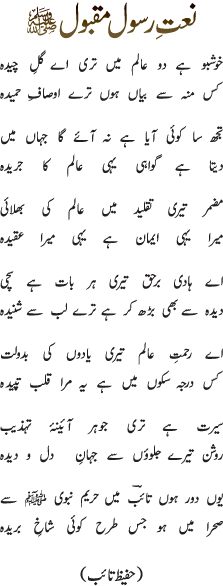 نعتِ رسول مقبول ﷺ
خوشبو ہے دو عالم میں تری اے گلِ چیدہ
کس منہ سے بیاں ہوں ترے اوصافِ حمیدہ
تجھ سا کوئی آیا ہے نہ آئے گا جہاں میں
دیتا ہے گواہی یہی عالم کا جریدہ
مضمر تیری تقلید میں عالم کی بھلائی
میرا یہی ایمان ہے یہی میرا عقیدہ
اے ہادی برحق تیری ہر بات ہے سچی
دیدہ سے بھی بڑھ کر ہے ترے لب سے شنیدہ
اے رحمتِ عالم تیری یادوں کی بدولت
کس درجہ سکوں میں ہے یہ مرا قلب تپیدہ
سیرت ہے تری جوہر آئینۂ تہذیب
روشن تیرے جلوؤں سے جہانِ دل و دیدہ
یوں دور ہوں تائبؔ میں حریم نبوی ﷺ سے
صحرا میں ہو جس طرح کوئی شاخِ بریدہ
(حفیظ تائب)